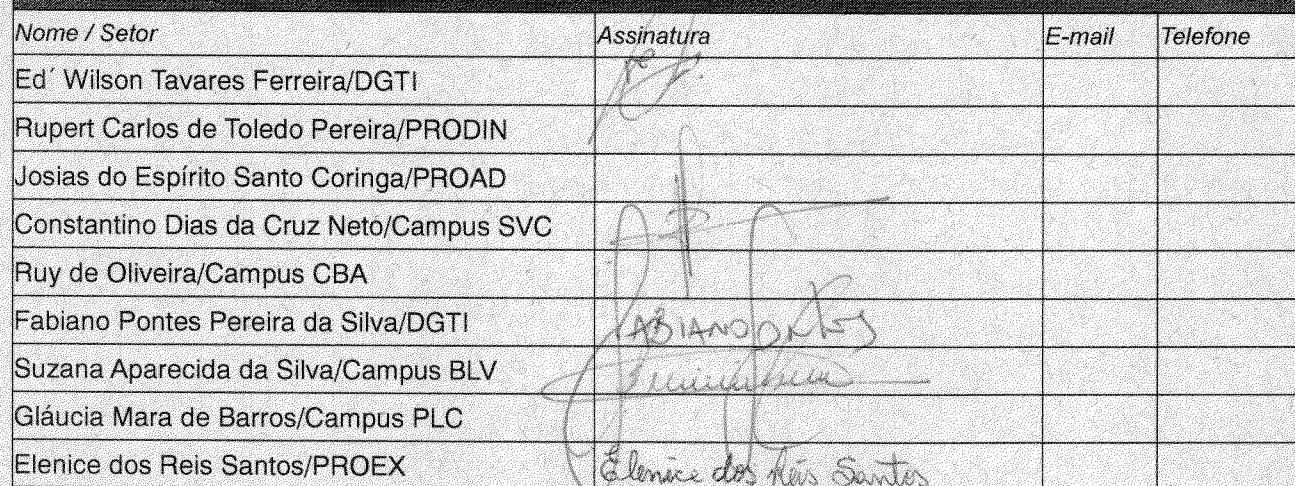 Nome / Setor Assinatura E-mail Telefone
Ed´ Wilson Tavares Ferreira/DGTI
Rupert Carlos de Toledo Pereira/PRODIN
Josias do Espírito Santo Coringa/PROAD
Constantino Dias da Cruz Neto/Campus SVC
Ruy de Oliveira/Campus CBA
Fabiano Pontes Pereira da Silva/DGTI FABIANO PONTES
Suzana Aparecida da Silva/Campus BLV
Gláucia Mara de Barros/Campus PLC
Elenice dos Reis Santos/PROEX Elenice dos Reis Santos